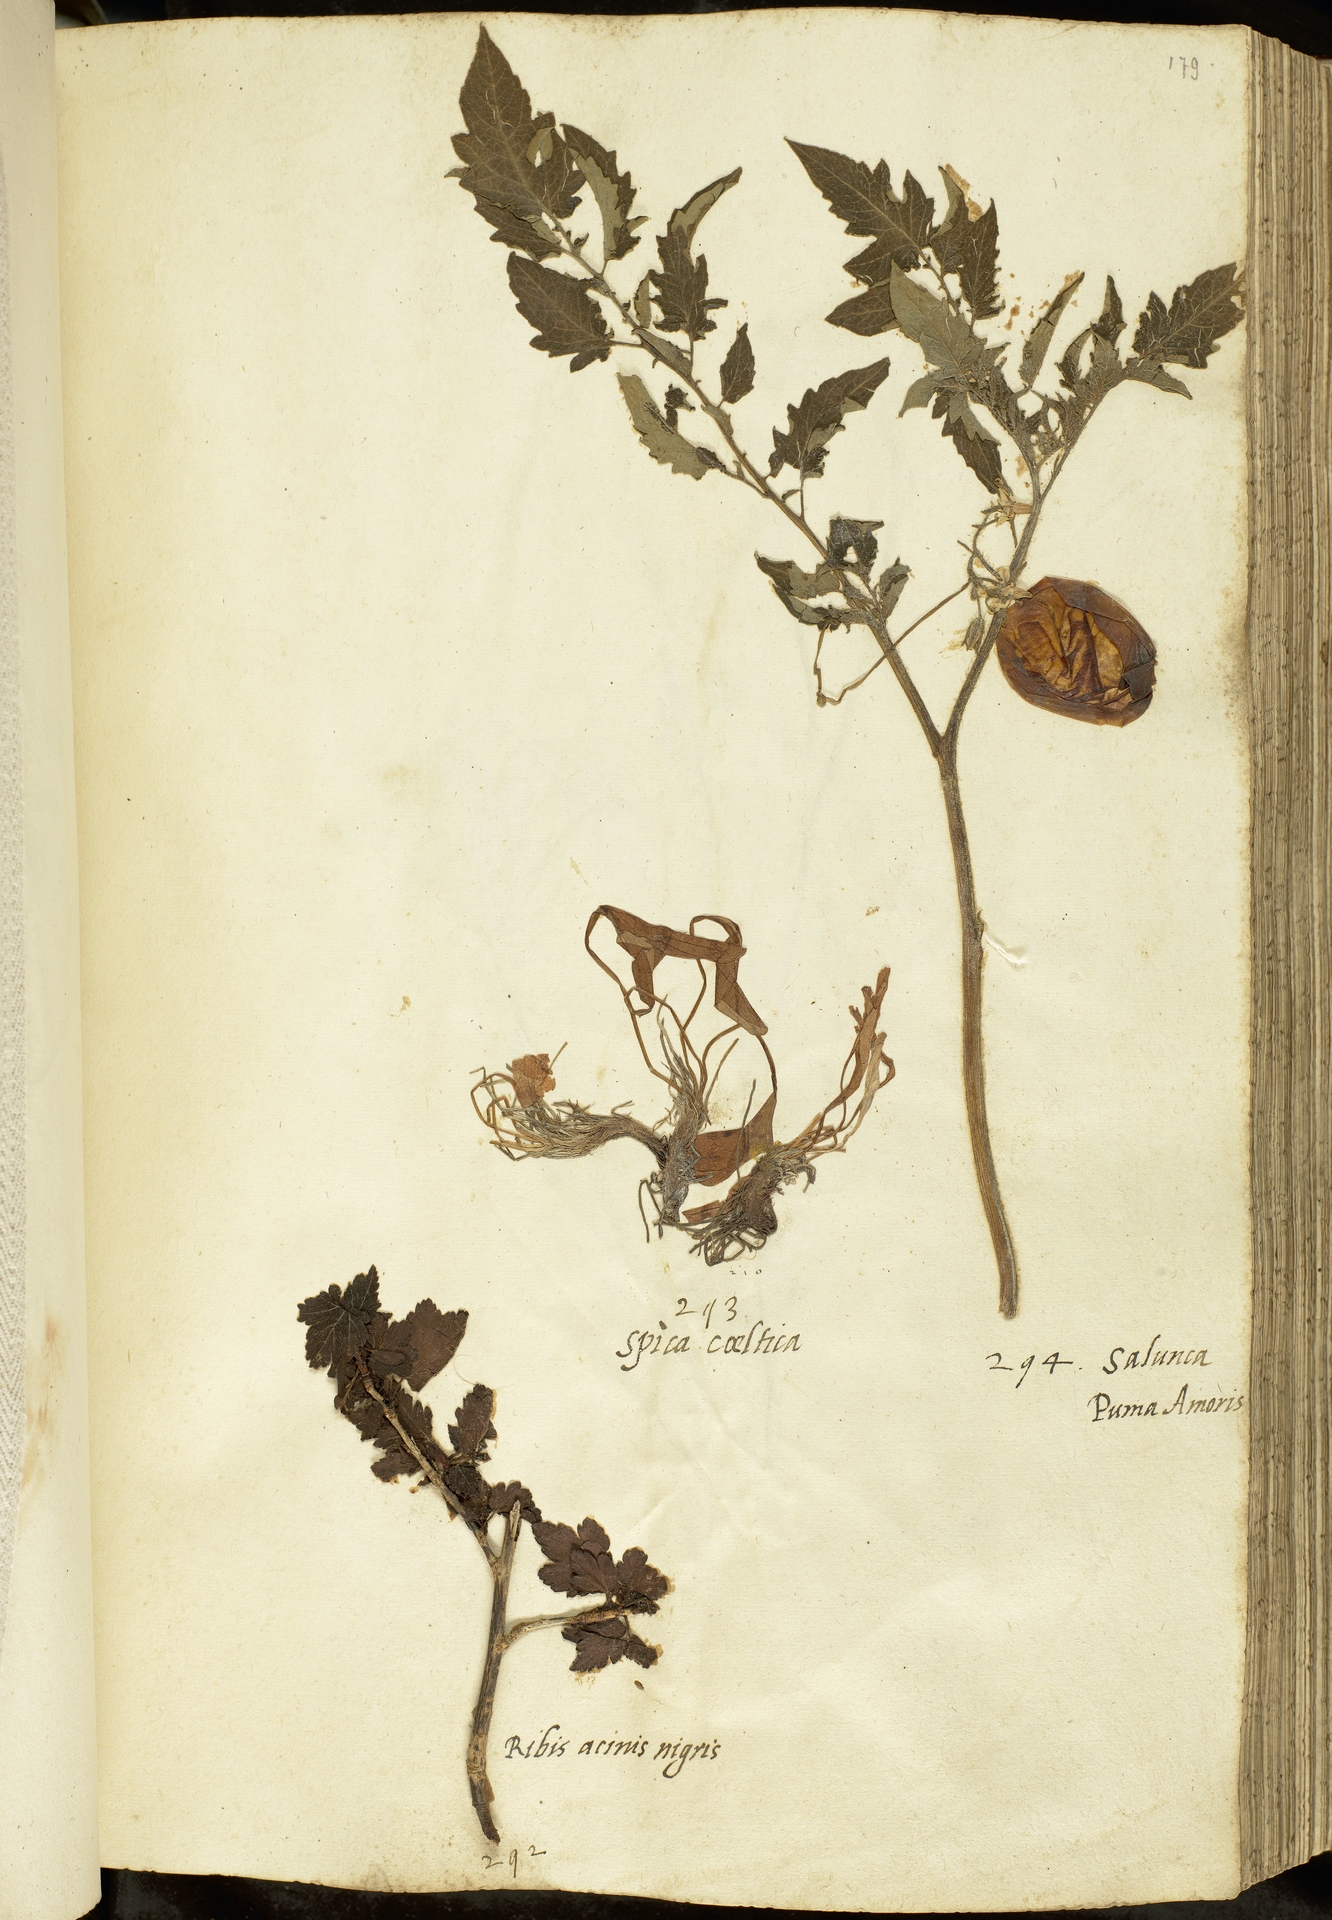 179
210
293
Spica cœltica
294. Salunca
Puma Amoris
Ribis acinis nigris
292